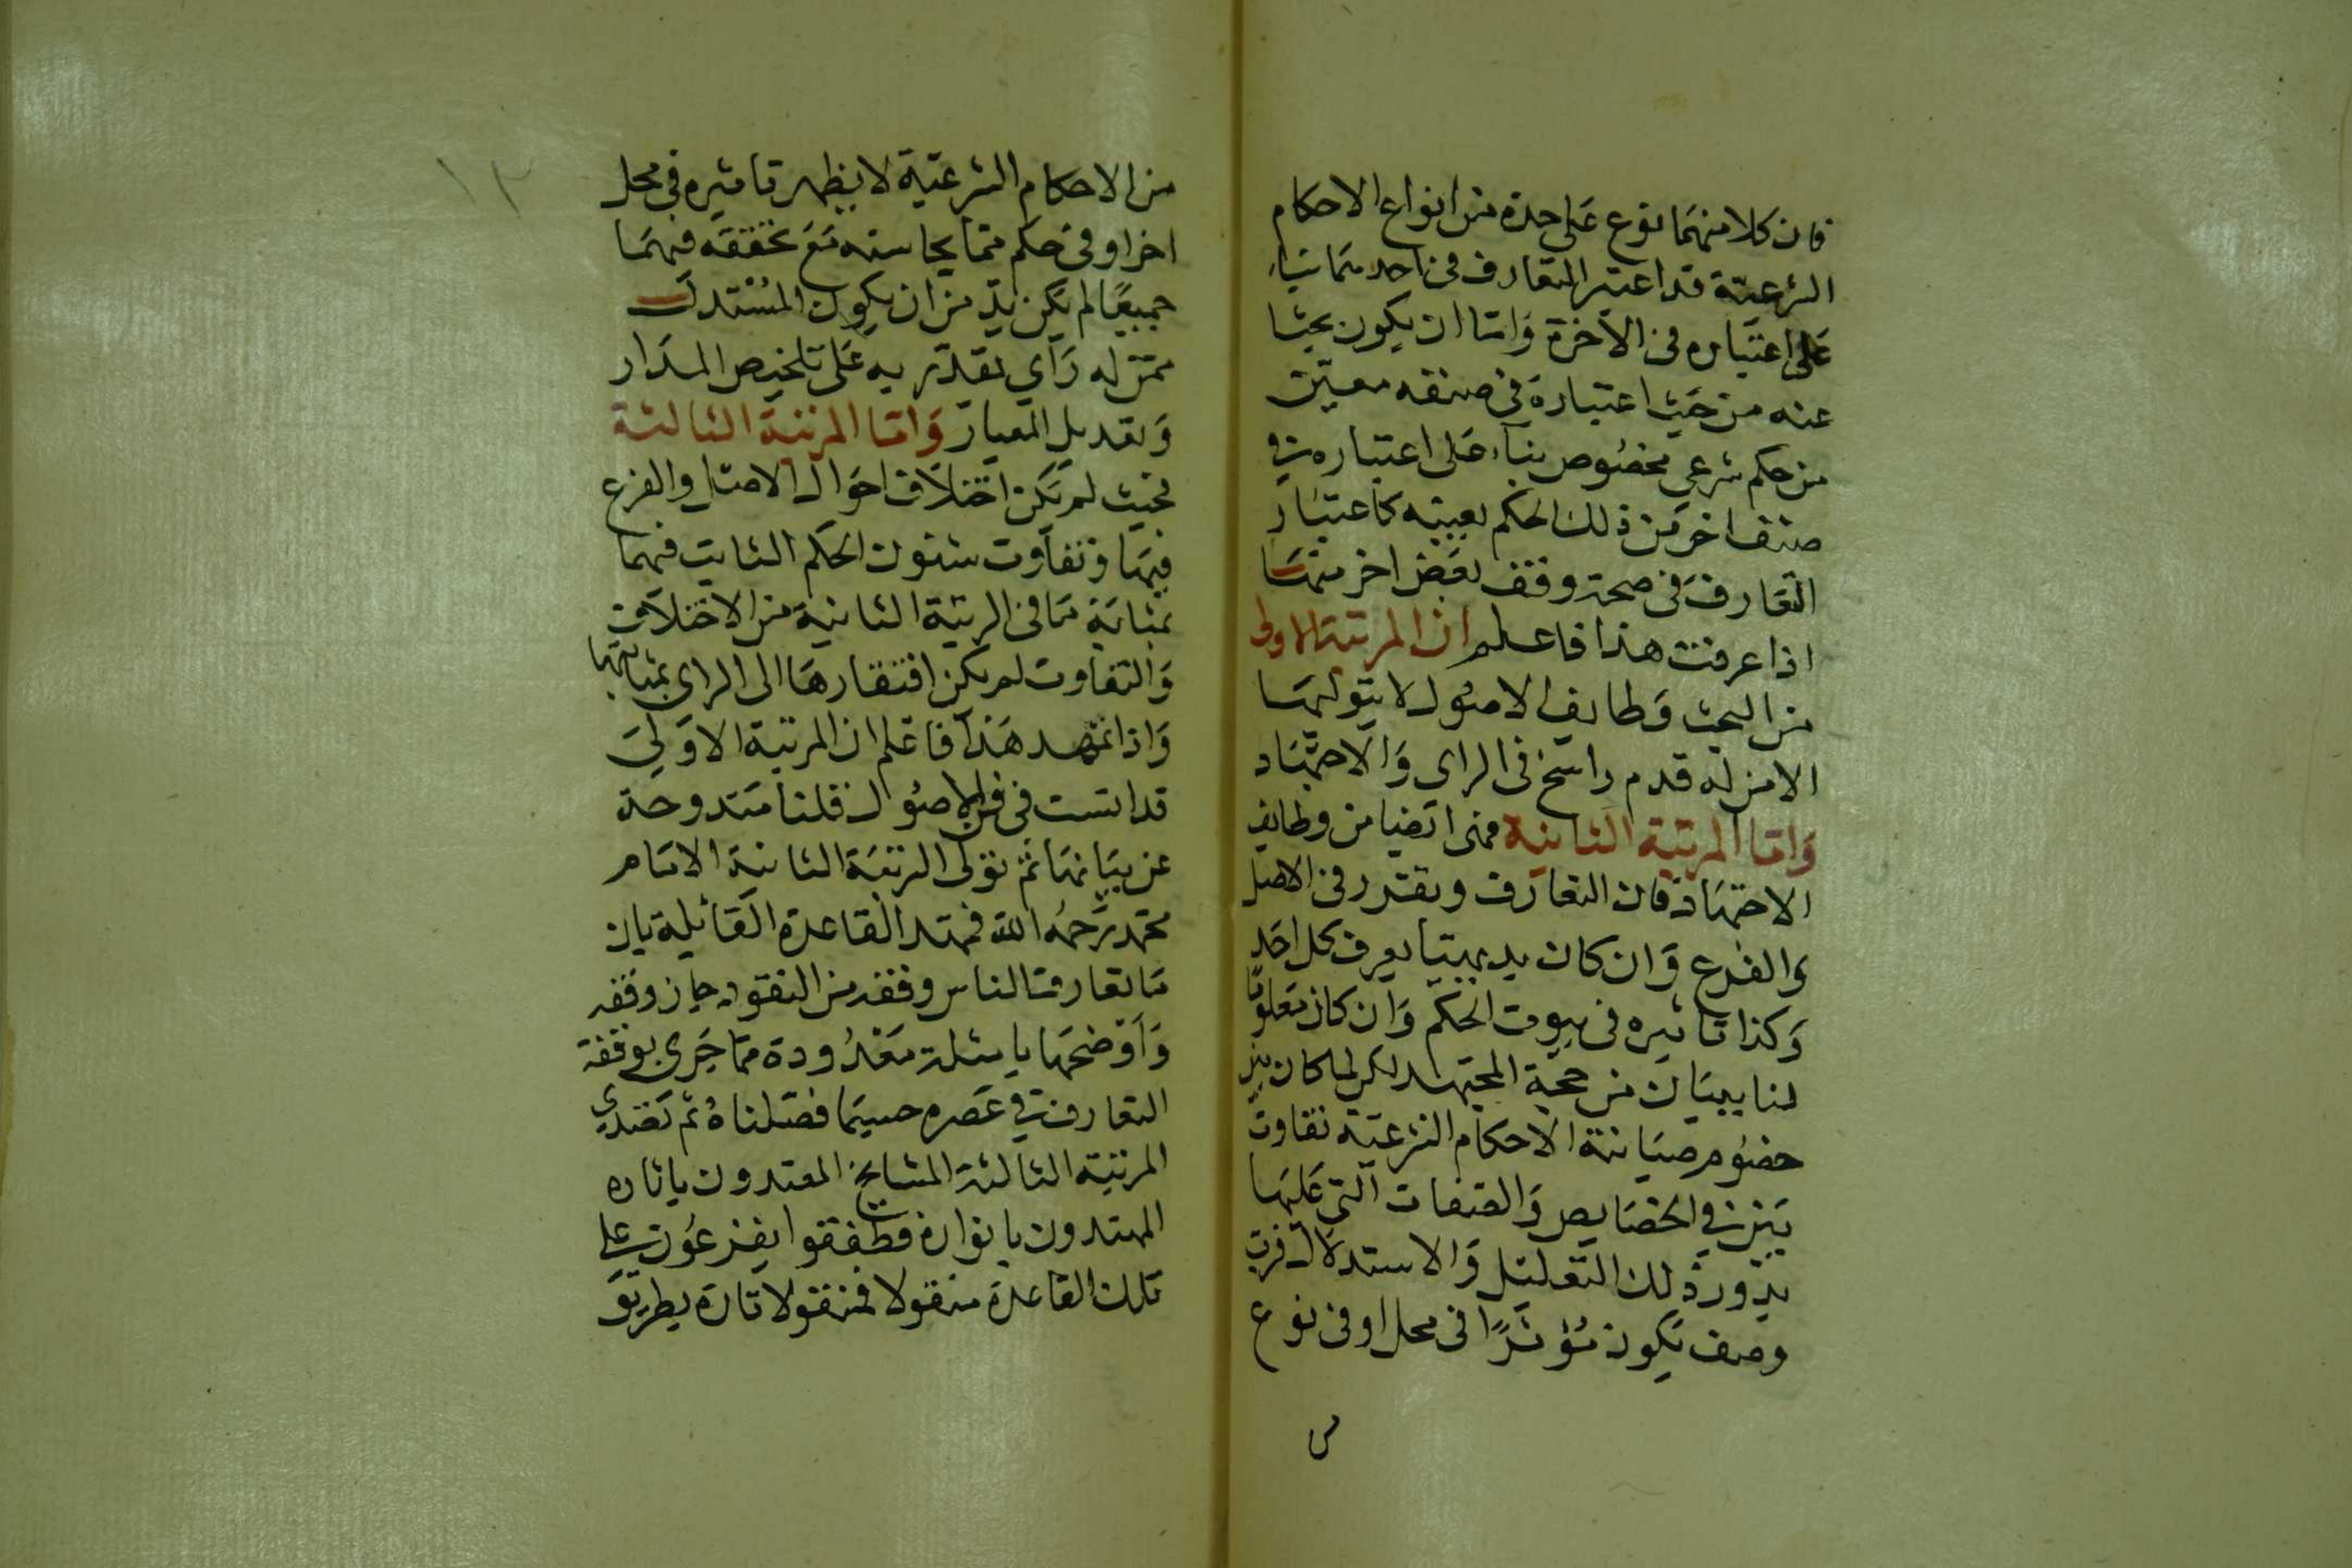 فان كلا منهما نوع على حدة من انواع الاحكام
الشرعية قد اعتبر التعارف فى احدهما بناء
على اعتباره فى الآخرة واما ان يكون بحثا
عنه من حيث اعتباره فى صنفه معين
من حكم شرعي مخصوص بناء على اعتباره فى
صنف اخر من ذلك الحكم بعينه كاعتبار
التعارف فى صحة وقف بعض اخر منهما
اذا عرفت هذا فاعلم ان المرتبة الاولى
من البحث وظايف الاصول لا يتولها
الا من له قدم راسخ فى الراى والاجتهاد
واما المرتبة الثانية فمنى ايضا من وظايف
الاجتهاد فان التعارف ويقتدر فى الاصل
والفرع وان كان بديهيتا يعرف كل احد
وكذا تاثيره فى بيوت الحكم وان كان معلوما
لنا ببيان من حجة المجتهد لكن لما كان بين
خصوم صيانة الاحكام الشرعية تفاوت
بين فى الخصايص والصفات التى عليها
يدور ذلك التعليل والاستدلال فرب
وصف يكون مؤثرا فى محل او فى نوع
س
١٣
من الاحكام الشرعية لا يظهر تاثيره فى محل
اخر او فى حكم مما يجانسه مع تحققه فيهما
جميعا لم يكن بد من ان يكون المستدل
ممن له رأي يقدر به على تلخيص المدار
وتعديل المعيار واما المرتبة الثالثة
فحيث لم يكن اختلاف احوال الاصل والفرع
فيها وتفاوت شئون الحكم الثابت فيهما
بمثابة ما فى الرتبة الثانية من الاختلاف
والتفاوت لم يكن افتقارها الى الراى بمثابتها
واذا تمهد هذا فاعلم ان المرتبة الاولى
قد اسست فى فن الاصول فلنا مندوحة
عن بيانها ثم تولى الرتبة الثانية الامام
محمد رحمه الله فمهد القاعدة القائلة بان
ما تعارف الناس وقفه من النقود جاز وقفه
واوضحها بامثلة معدودة مما جرى بوقفه
التعارف فى عصره حسبما فصلناه ثم تصدى
المرتبة الثالثة المشايخ المقتدون باثاره
المهتدون بانواره فطفقوا يفرعون على
تلك القاعدة منقولا فمنقولا تارة بطريق